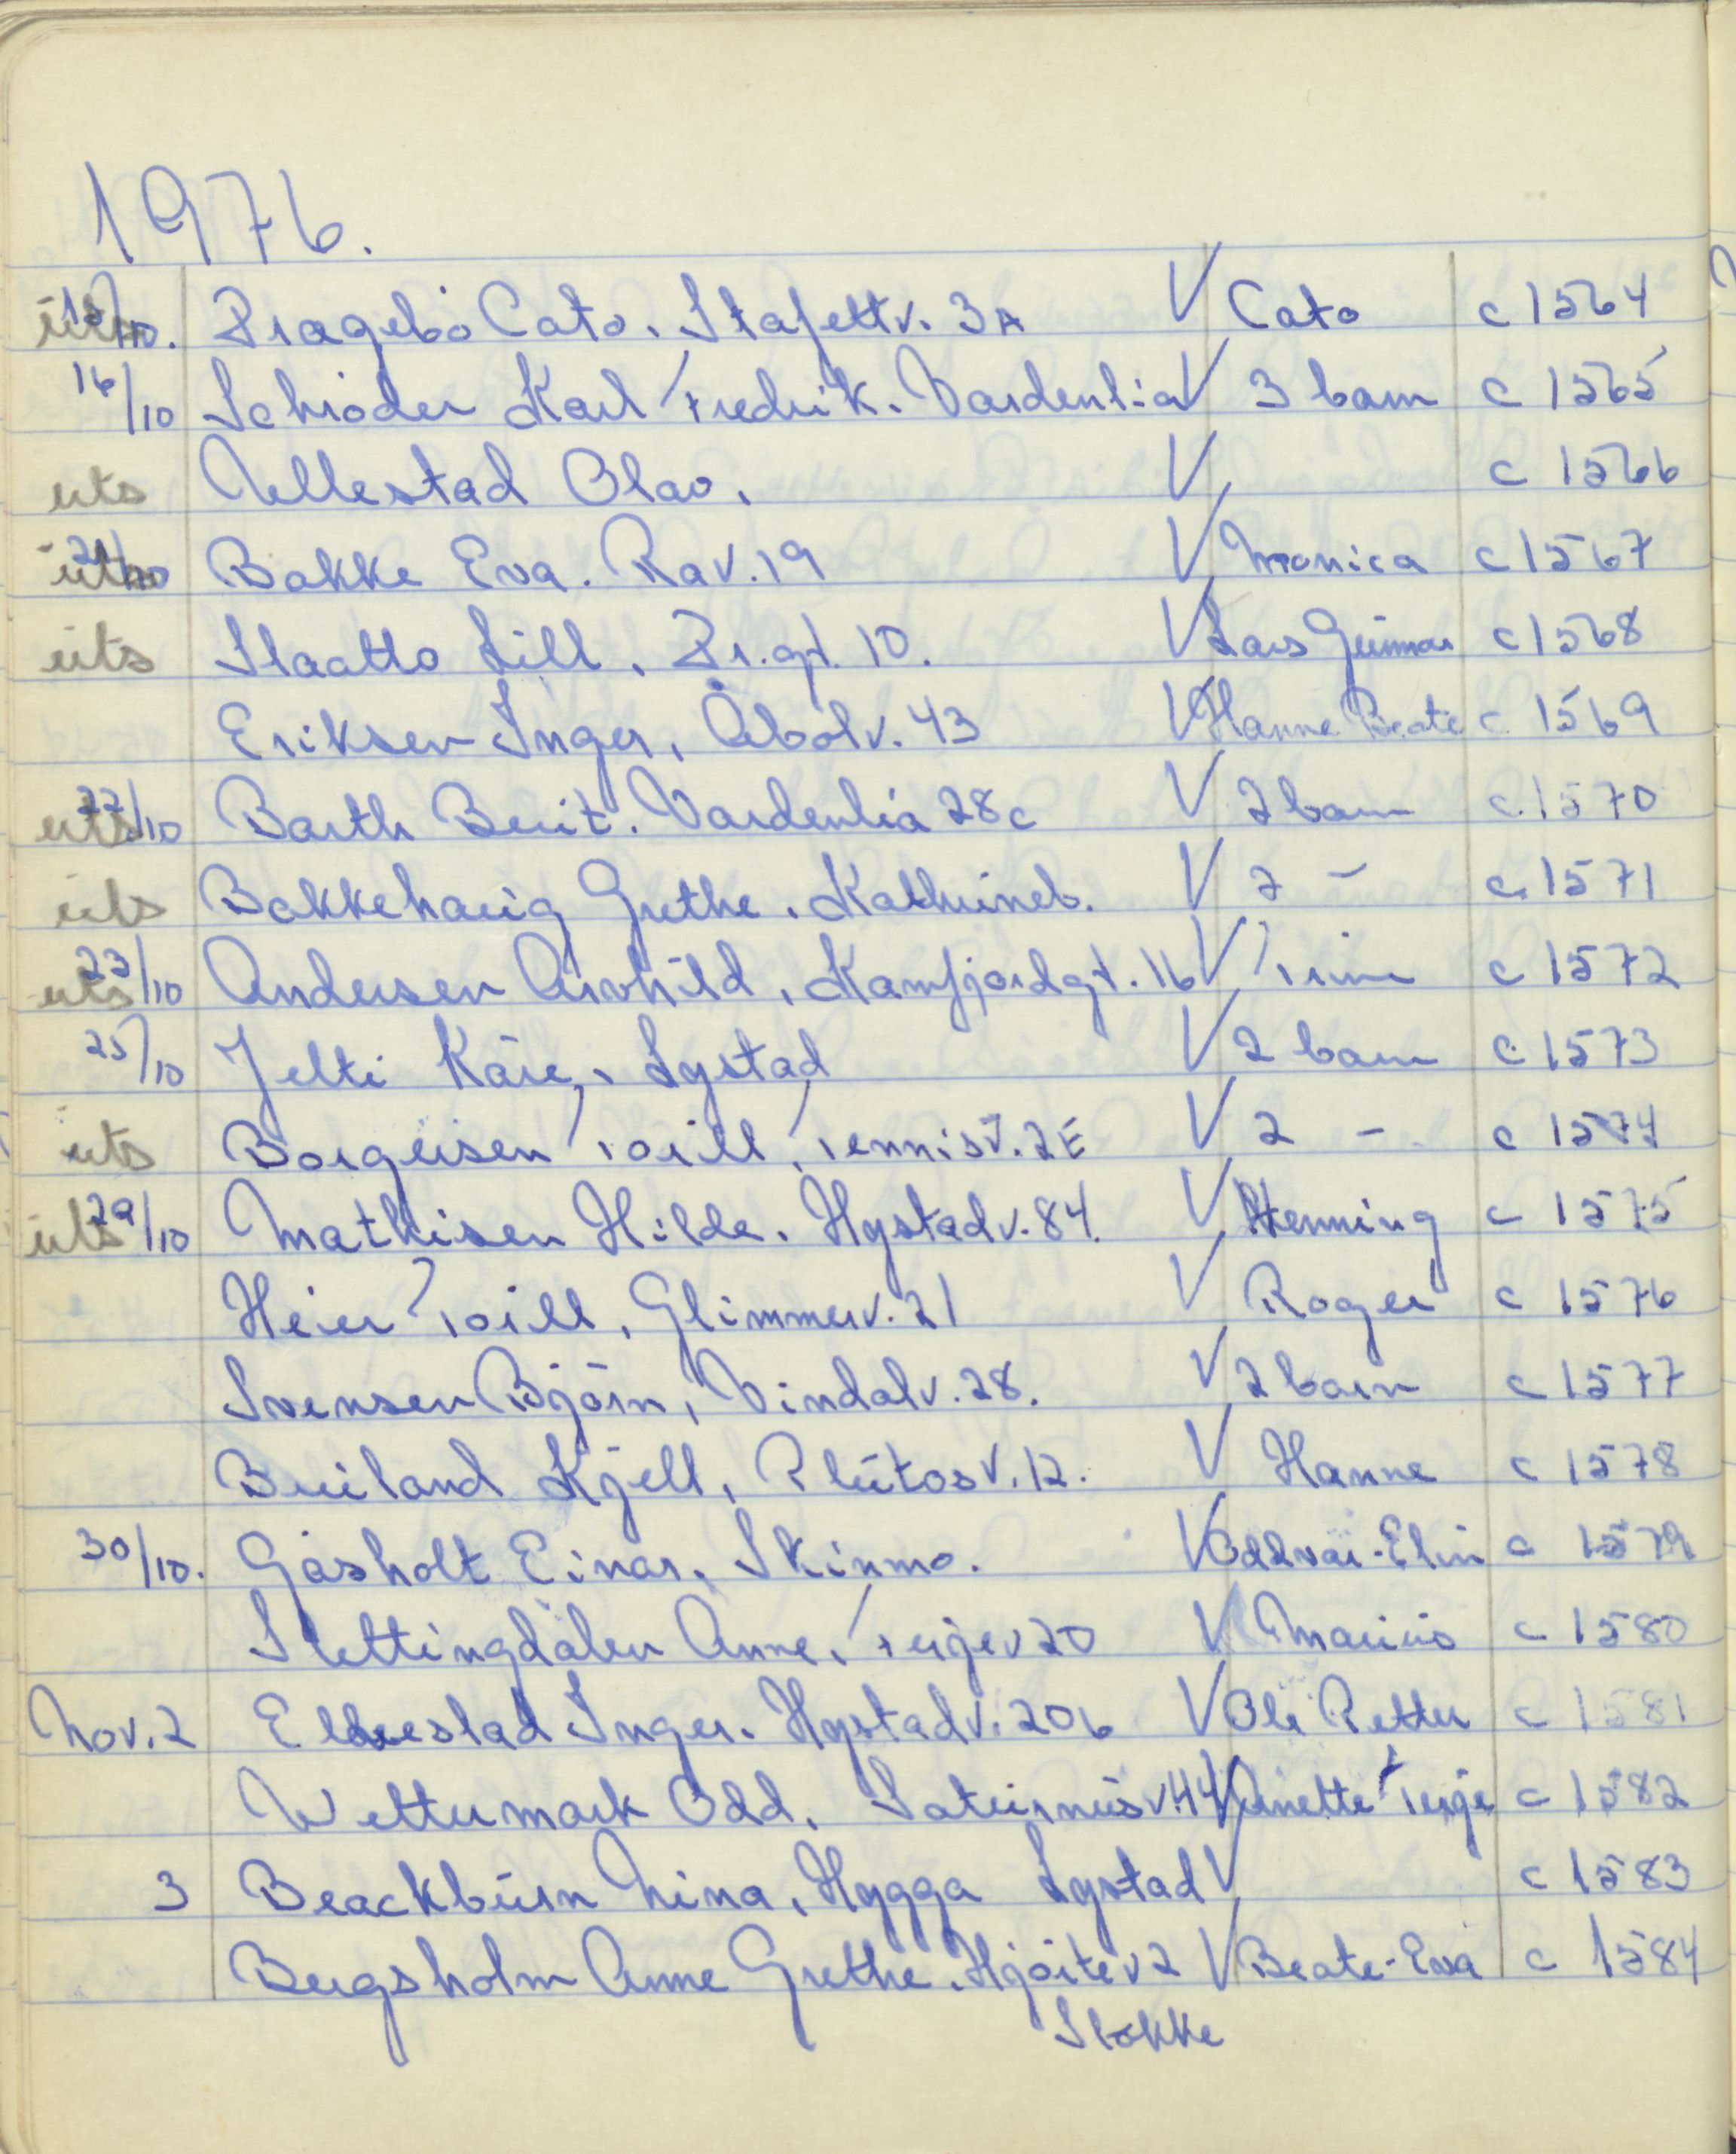 1976.
uts 15/10. Pragebö Cato. Stafettv. 3A V Cato c 1564
16/10 Schröder Karl Fredrik. Vardenlia V 3 barn c 1565
uts Ullestad Olav. V c 1566
uts 21/10 Bakke Eva. Rav. 19 V Monica c 1567
uts Staatto Lill. Pr.gt. 10. V Lars Gunnar c 1568
Eriksen Inger, Åbolv. 43 V Hanne Beate c 1569
uts 22/10 Barth Berit. Vardenlia 28c V 2 barn c 1570
uts Bakkehaug Grethe. Kathrineb. V 2 – c. 1571
uts 23/10 Andersen Arnhild, Kamfjordgt. 16 V Trine c 1572
25/10 Jelti Kåre, Lystad V 2 barn c 1573
uts Borgersen Torill, Tennisv. 2E V 2 – c 1574
uts 29/10 Mathisen Hilde. Hystadv. 84 V Henning c 1575
Heier Torill, Glimmerv. 21 V Roger c 1576
Svensen Björn, Vindalv. 28. V 2 barn c 1577
Breiland Kjell, Plutosv. 12. V Hanne c 1578
30/10. Gåsholt Einar. Skinmo. V Oddvar-Elin c 1579
Slettingdalen Anne. Terjev 20 V Marius c 1580
Nov. 2 Ellestad Inger. Hystadv. 206 V Ole Petter c 1581
Wettermark Odd. Saturnusv. 44 V Anette Terje c 1582
3 Beackburn Nina, Hygga Lystad V c 1583
Bergsholm Anne Grethe. Hjortev 2 V Beate-Eva c 1584
Stokke